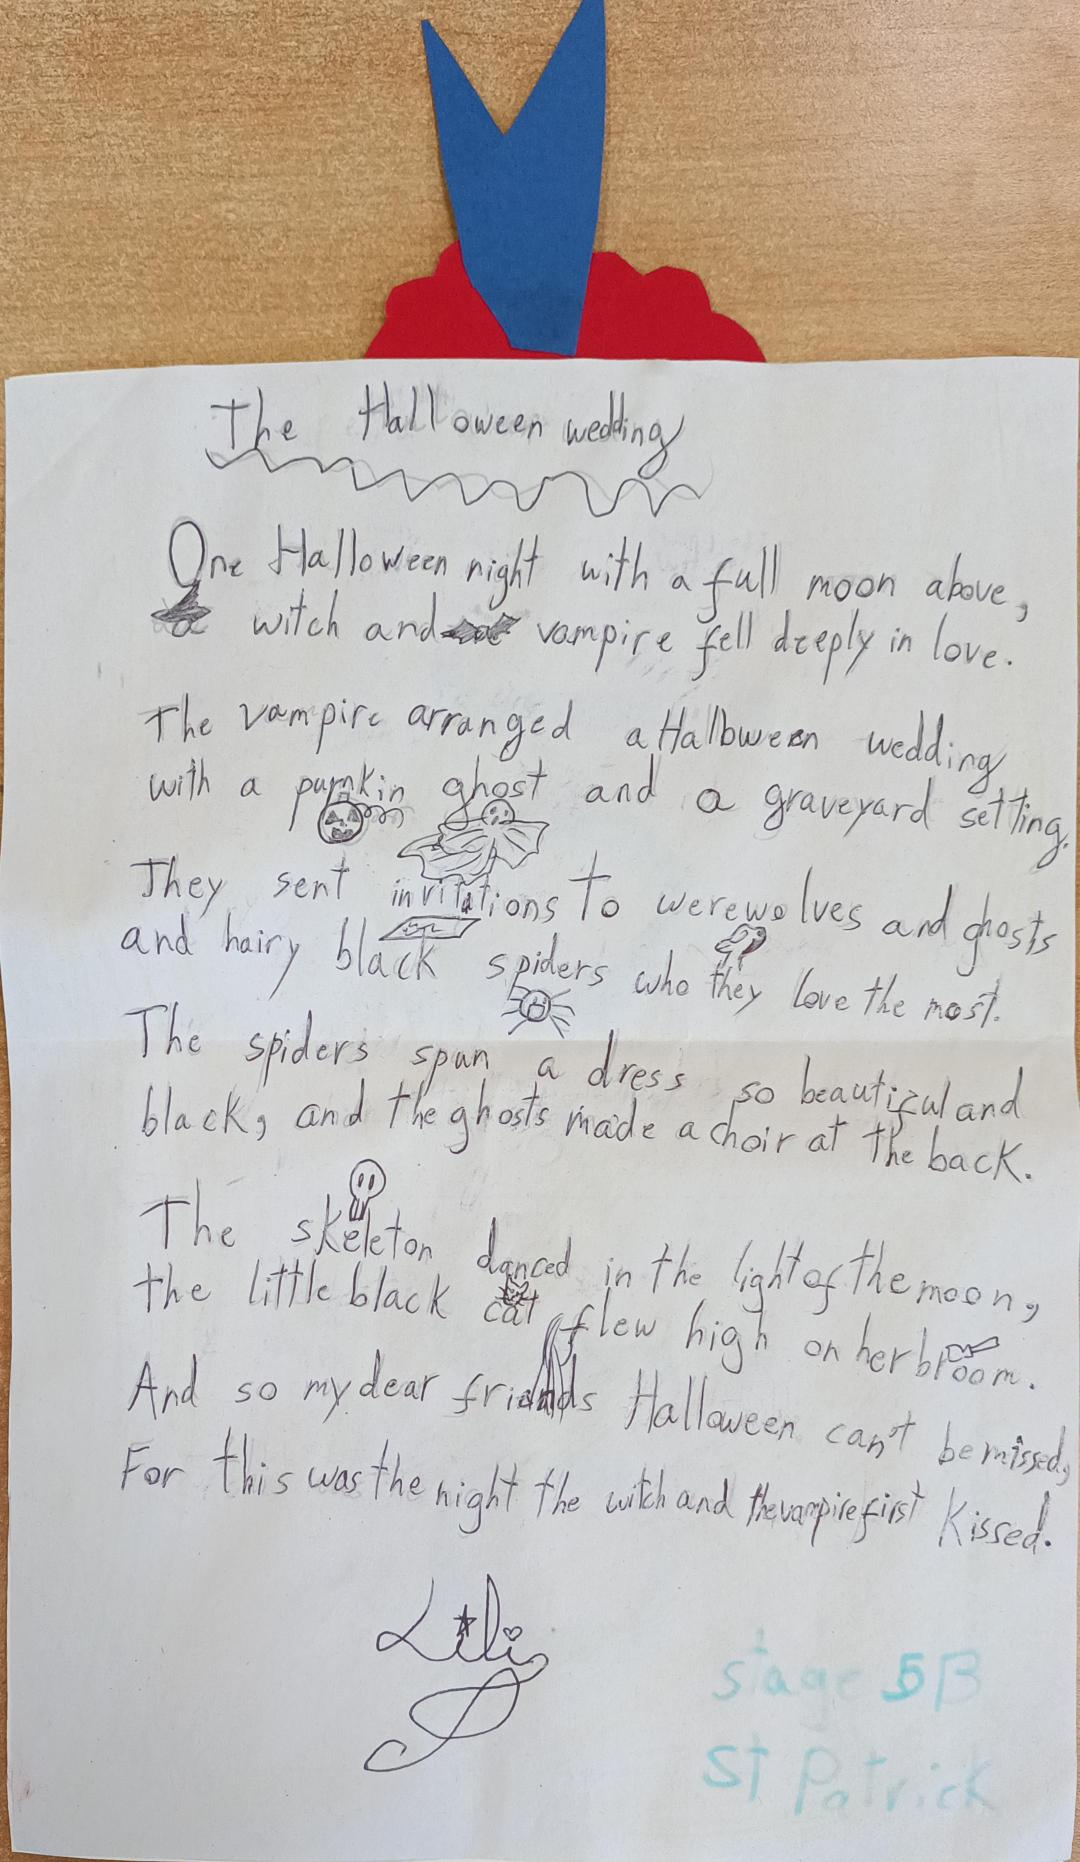 The Halloween wedding
One Halloween night with a full moon above,
a witch and a vampire fell deeply in love.
The vampire arranged a Halloween wedding
with a pumkin ghost and a graveyard setting.
They sent invitations to werewolves and ghosts
and hairy black spiders who they love the most.
The spiders spun a dress so beautiful and
black, and the ghosts made a choir at the back.
The skeleton danced in the light of the moon,
the little black cat flew high on her broom.
And so my dear friends Halloween can't be missed,
For this was the night the witch and the vampire first kissed.
Lili
stage 5B
St Patrick